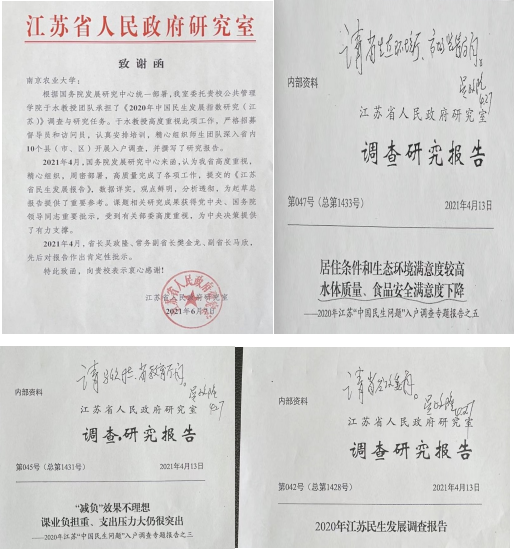 江苏省人民政府研究室
致谢函
南京农业大学：
根据国务院发展研究中心统一部署，我室委托贵校公共管理
学院于水教授团队承担了《2020年中国民生发展指数研究（江
苏）》调查与研究任务。于水教授高度重视此项工作，严格招募
督导员和访问员，认真安排培训，精心组织师生团队深入省内
10个县（市、区）开展入户调查，并撰写了研究报告。
2021年4月，国务院发展研究中心来函，认为我省高度重视，
精心组织，周密部署，高质量完成了各项工作，提交的《江
苏省民生发展报告》，数据详实，观点鲜明，分析透彻，为起草总
报告提供了重要参考。课题相关研究成果获得党中央、国务院
领导同志重要批示，受到有关部委高度重视，为中央决策提供
了有力支撑。
2021年4月，省长吴政隆、常务副省长樊金龙、副省长马欣，
先后对报告作出肯定性批示。
特此致函，向贵校表示衷心感谢！
江苏省人民政府研究室
2021年6月
内部资料
江苏省人民政府研究室
调查研究报告
第047号（总第1433号）
2021年4月13日
居住条件和生态环境满意度较高
水体质量、食品安全满意度下降
——2020年江苏“中国民生问题”入户调查专题报告之五
内部资料
江苏省人民政府研究室
调查研究报告
第045号（总第1431号）
2021年4月13日
“减负”效果不理想
课业负担重、支出压力大仍很突出
——2020年江苏“中国民生问题”入户调查专题报告之三
内部资料
江苏省人民政府研究室
调查研究报告
第042号（总第1428号）
2021年4月13日
2020年江苏民生发展调查报告